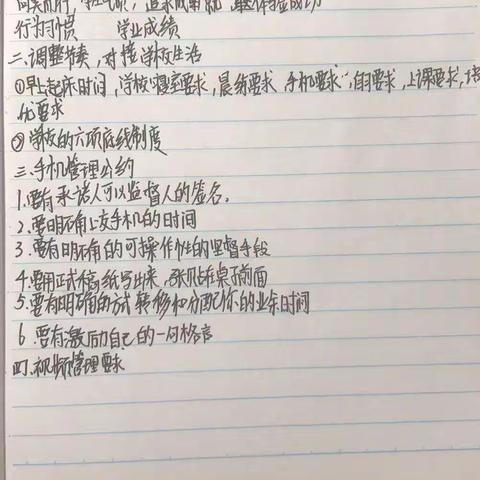 向美而行，学生气质，追求成就，体验成功
行为习惯 学业成绩
二、调整节奏，对接学校生活
①早上起床时间，学校寝室要求，晨练要求，手机要求，自习要求，上课要求，
化要求
②学校的六项底线制度
三、手机管理公约
1.要有承诺人可以监督人的签名。
2.要明确上交手机的时间
3.要有明确的可操作性的坚督手段
4.要用正式稿纸写出来，张贴在桌子前面
5.要有明确的方式转移和分配你的业余时间
6.要有激励自己的一句格言
四、视频管理要求